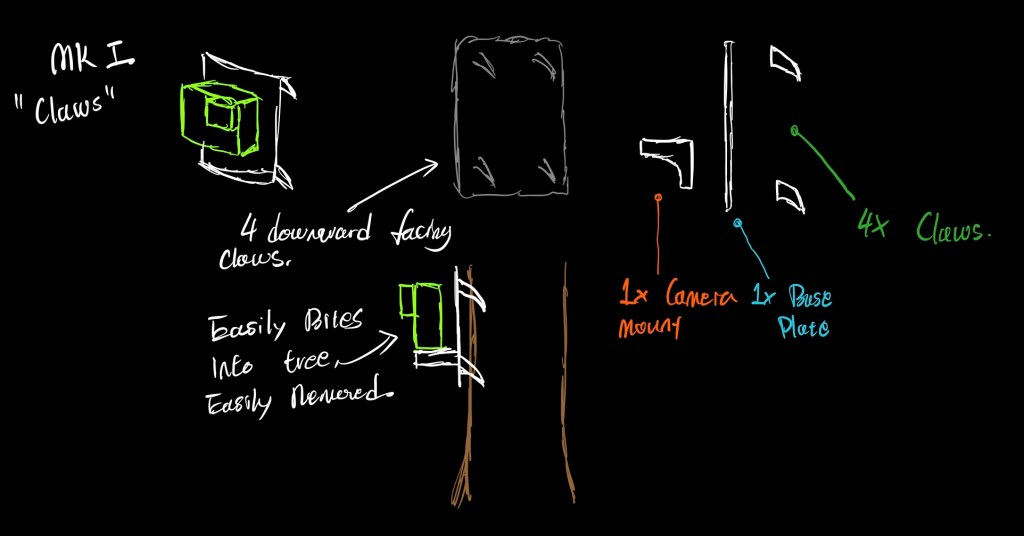 MK I.
"Claws"
4 downward facing
claws.
Easily Bites
Into tree,
Easily Removed.
1x Camera
mount
1x Base
Plate
4x Claws.